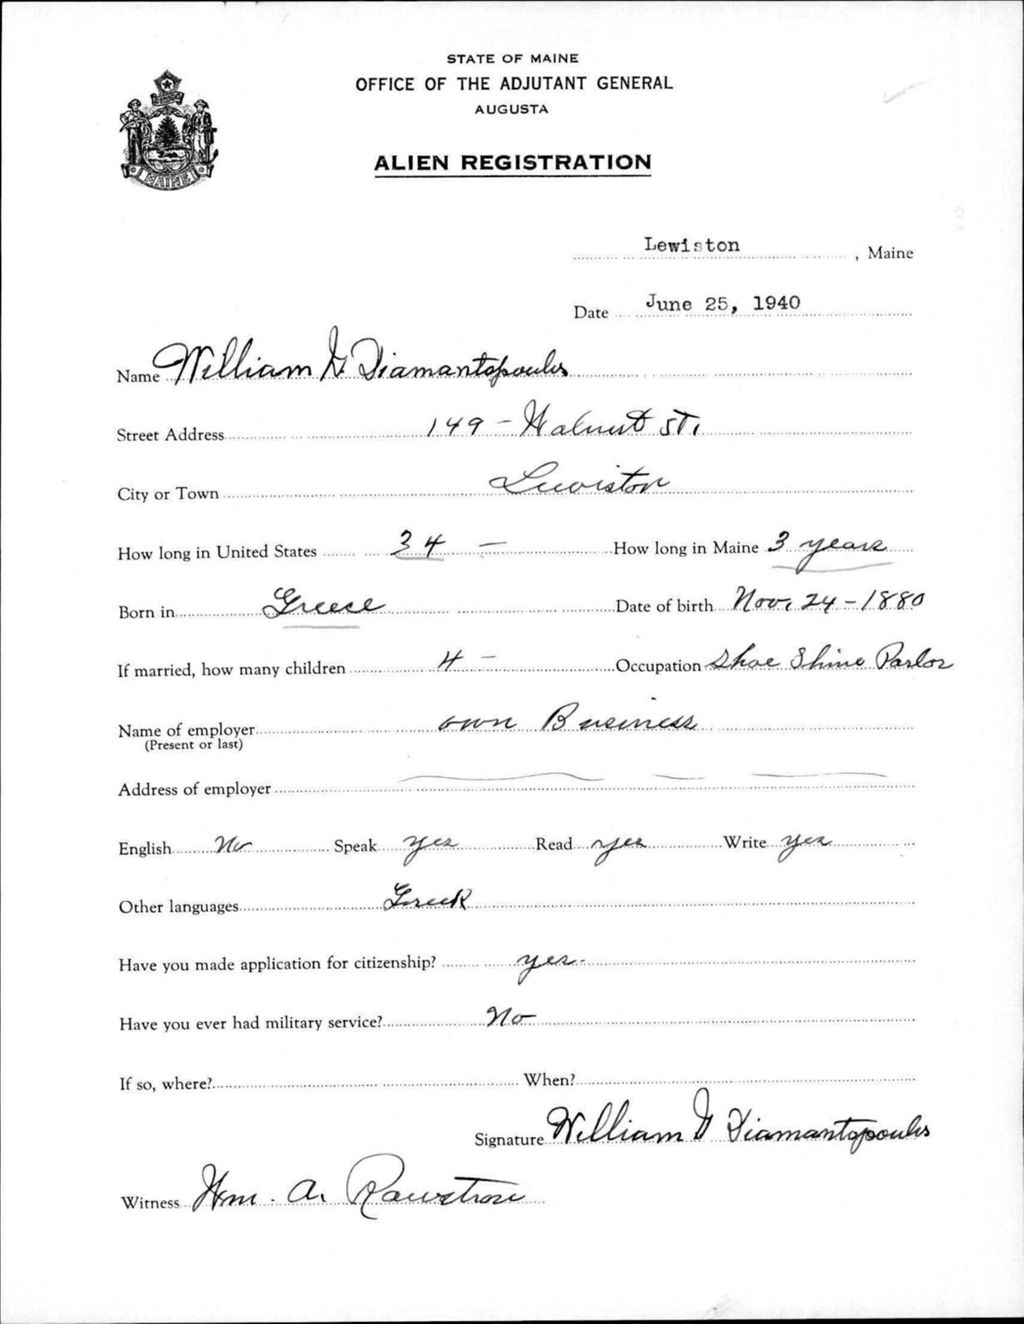 STATE OF MAINE
OFFICE OF THE ADJUTANT GENERAL
AUGUSTA
ALIEN REGISTRATION
MAINE
Lewiston, Maine
Date June 25, 1940
Name William G Diamantopoulos
Street Address 149 - Walnut St.
City or Town Lewiston
How long in United States 34 — How long in Maine 3 years
Born in Greece Date of birth Nov. 24 - 1880
If married, how many children 4 — Occupation Shoe Shine Parlor
Name of employer own Business
(Present or last)
Address of employer
English No Speak yes Read yes Write yes
Other languages Greek
Have you made application for citizenship? yes.
Have you ever had military service? No
If so, where? When?
Signature William G Diamantopoulos
Witness Wm. A. Rawstron